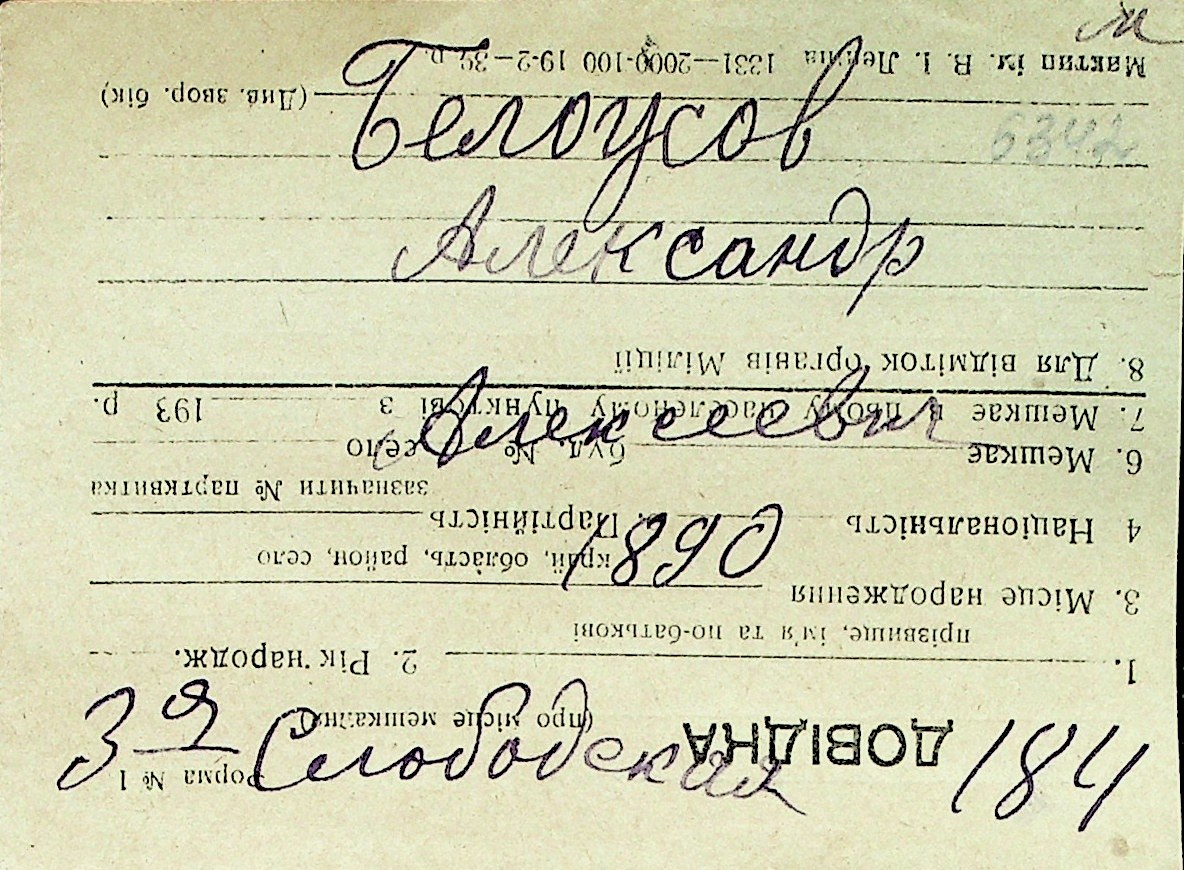 м
Белоусов
6342
Александр
Алексеевич
1890
3-я Слободская 184
Форма № 1
ДОВІДКА
(про місце мешкання)
1. 2. Рік народж.
прізвище, ім'я та по-батькові
3. Місце народження
край, область, район, село
4 Національність Партійність
зазначити № партквитка
6. Мешкає буд. № село
7. Мешкає в цьому населеному пунктові з 193 р.
8. Для відміток органів Міліції
(Див. звор. бік)
Мактип ім. В. І. Леніна 1331—2000-100 19-2—39 р.